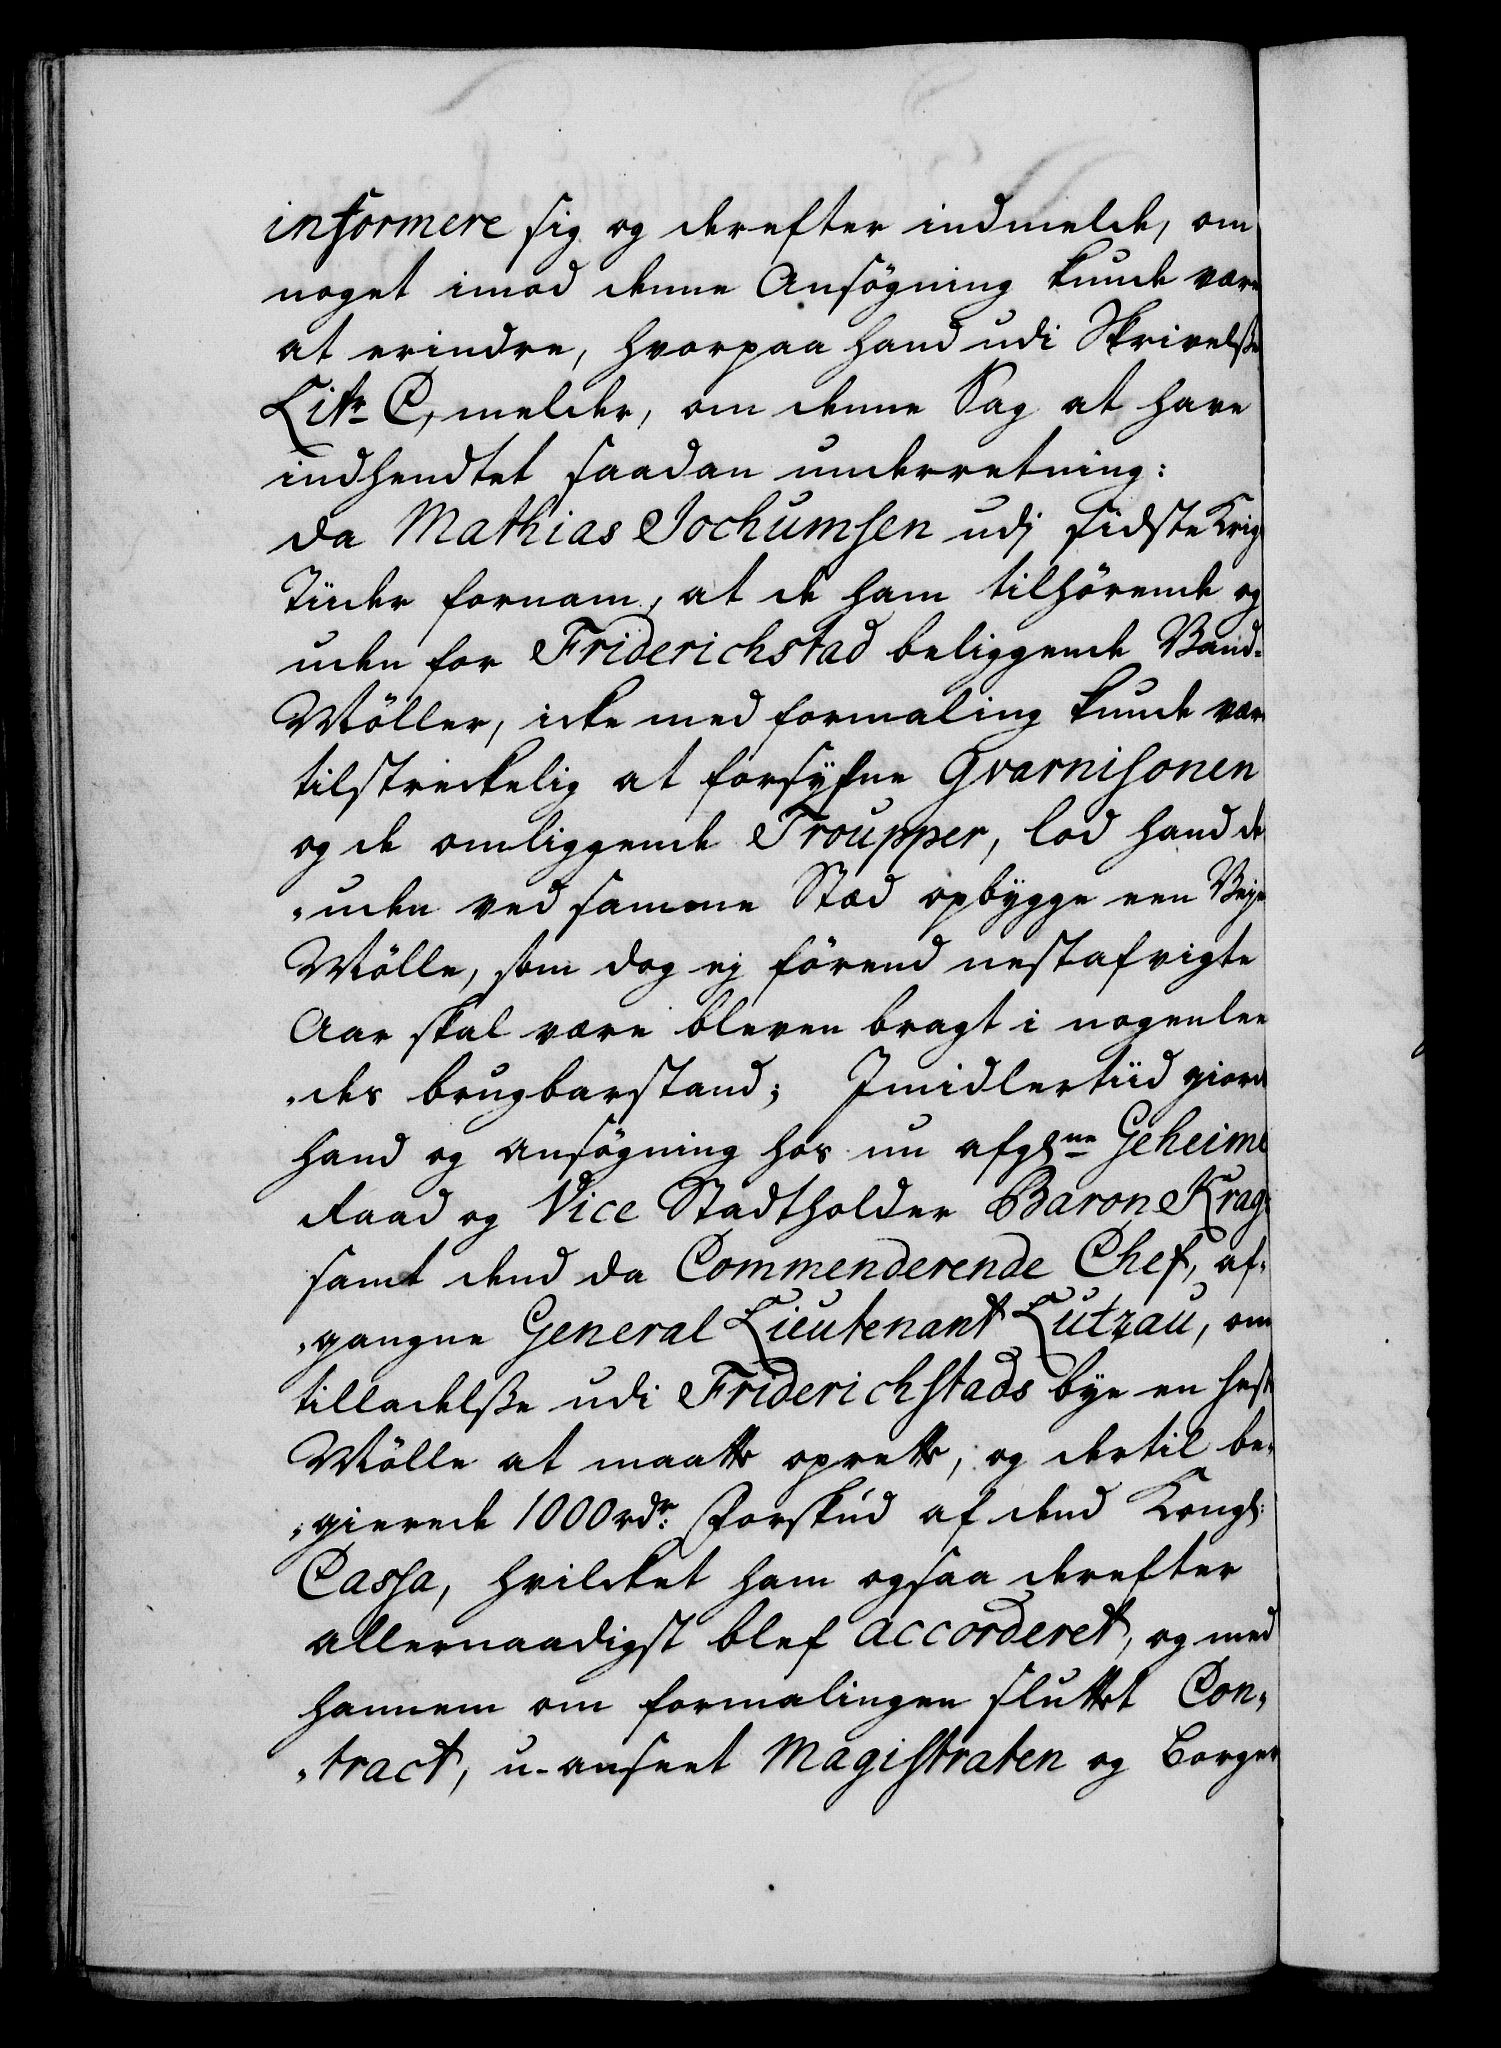 informere sig og derefter indmelde, om
noget imod denne Ansøgning kunde være
at erindre, hvorpaa hand udi Skrivelsße
Litr C, melder, om denne Sag at have
indhendtet saadan underretning:
da Mathias Jochumsen udj sidste Krigs
Tiider fornam, at de ham tilhørende og
uden for Friderichstad beliggende Vand-
Møller, icke med formaling kunde være
tilstreckelig at forsÿfne Gvarnisonen
og de omliggende Troupper, lod hand de
„uden ved samme Stæd opbÿgge een Veyr
Mølle, som dog ej førend nestafvigte
Aar skal være bleven bragt i nogenlee
„des brugbarstand; Imidlertiid giorde
hand og ansøgning hos nu afgl:ne Geheime
Raad og Vice Stadtholder Baron Krag
samt dend da Commenderende Chef, af-
„gangne General Lieutenant Lützau, om
tilladelsße udi Friderichstads bÿe en Heste
Mølle at maatte oprette, og dertil be-
„gierede 1000 rdr: Forskud af dend Kongl:
Cassa, hvilcket ham ogsaa derefter
allernaadigst blef accorderet, og med
hannem om formalingen sluttet Con-
„tract, u-anseet Magistraten og Borger